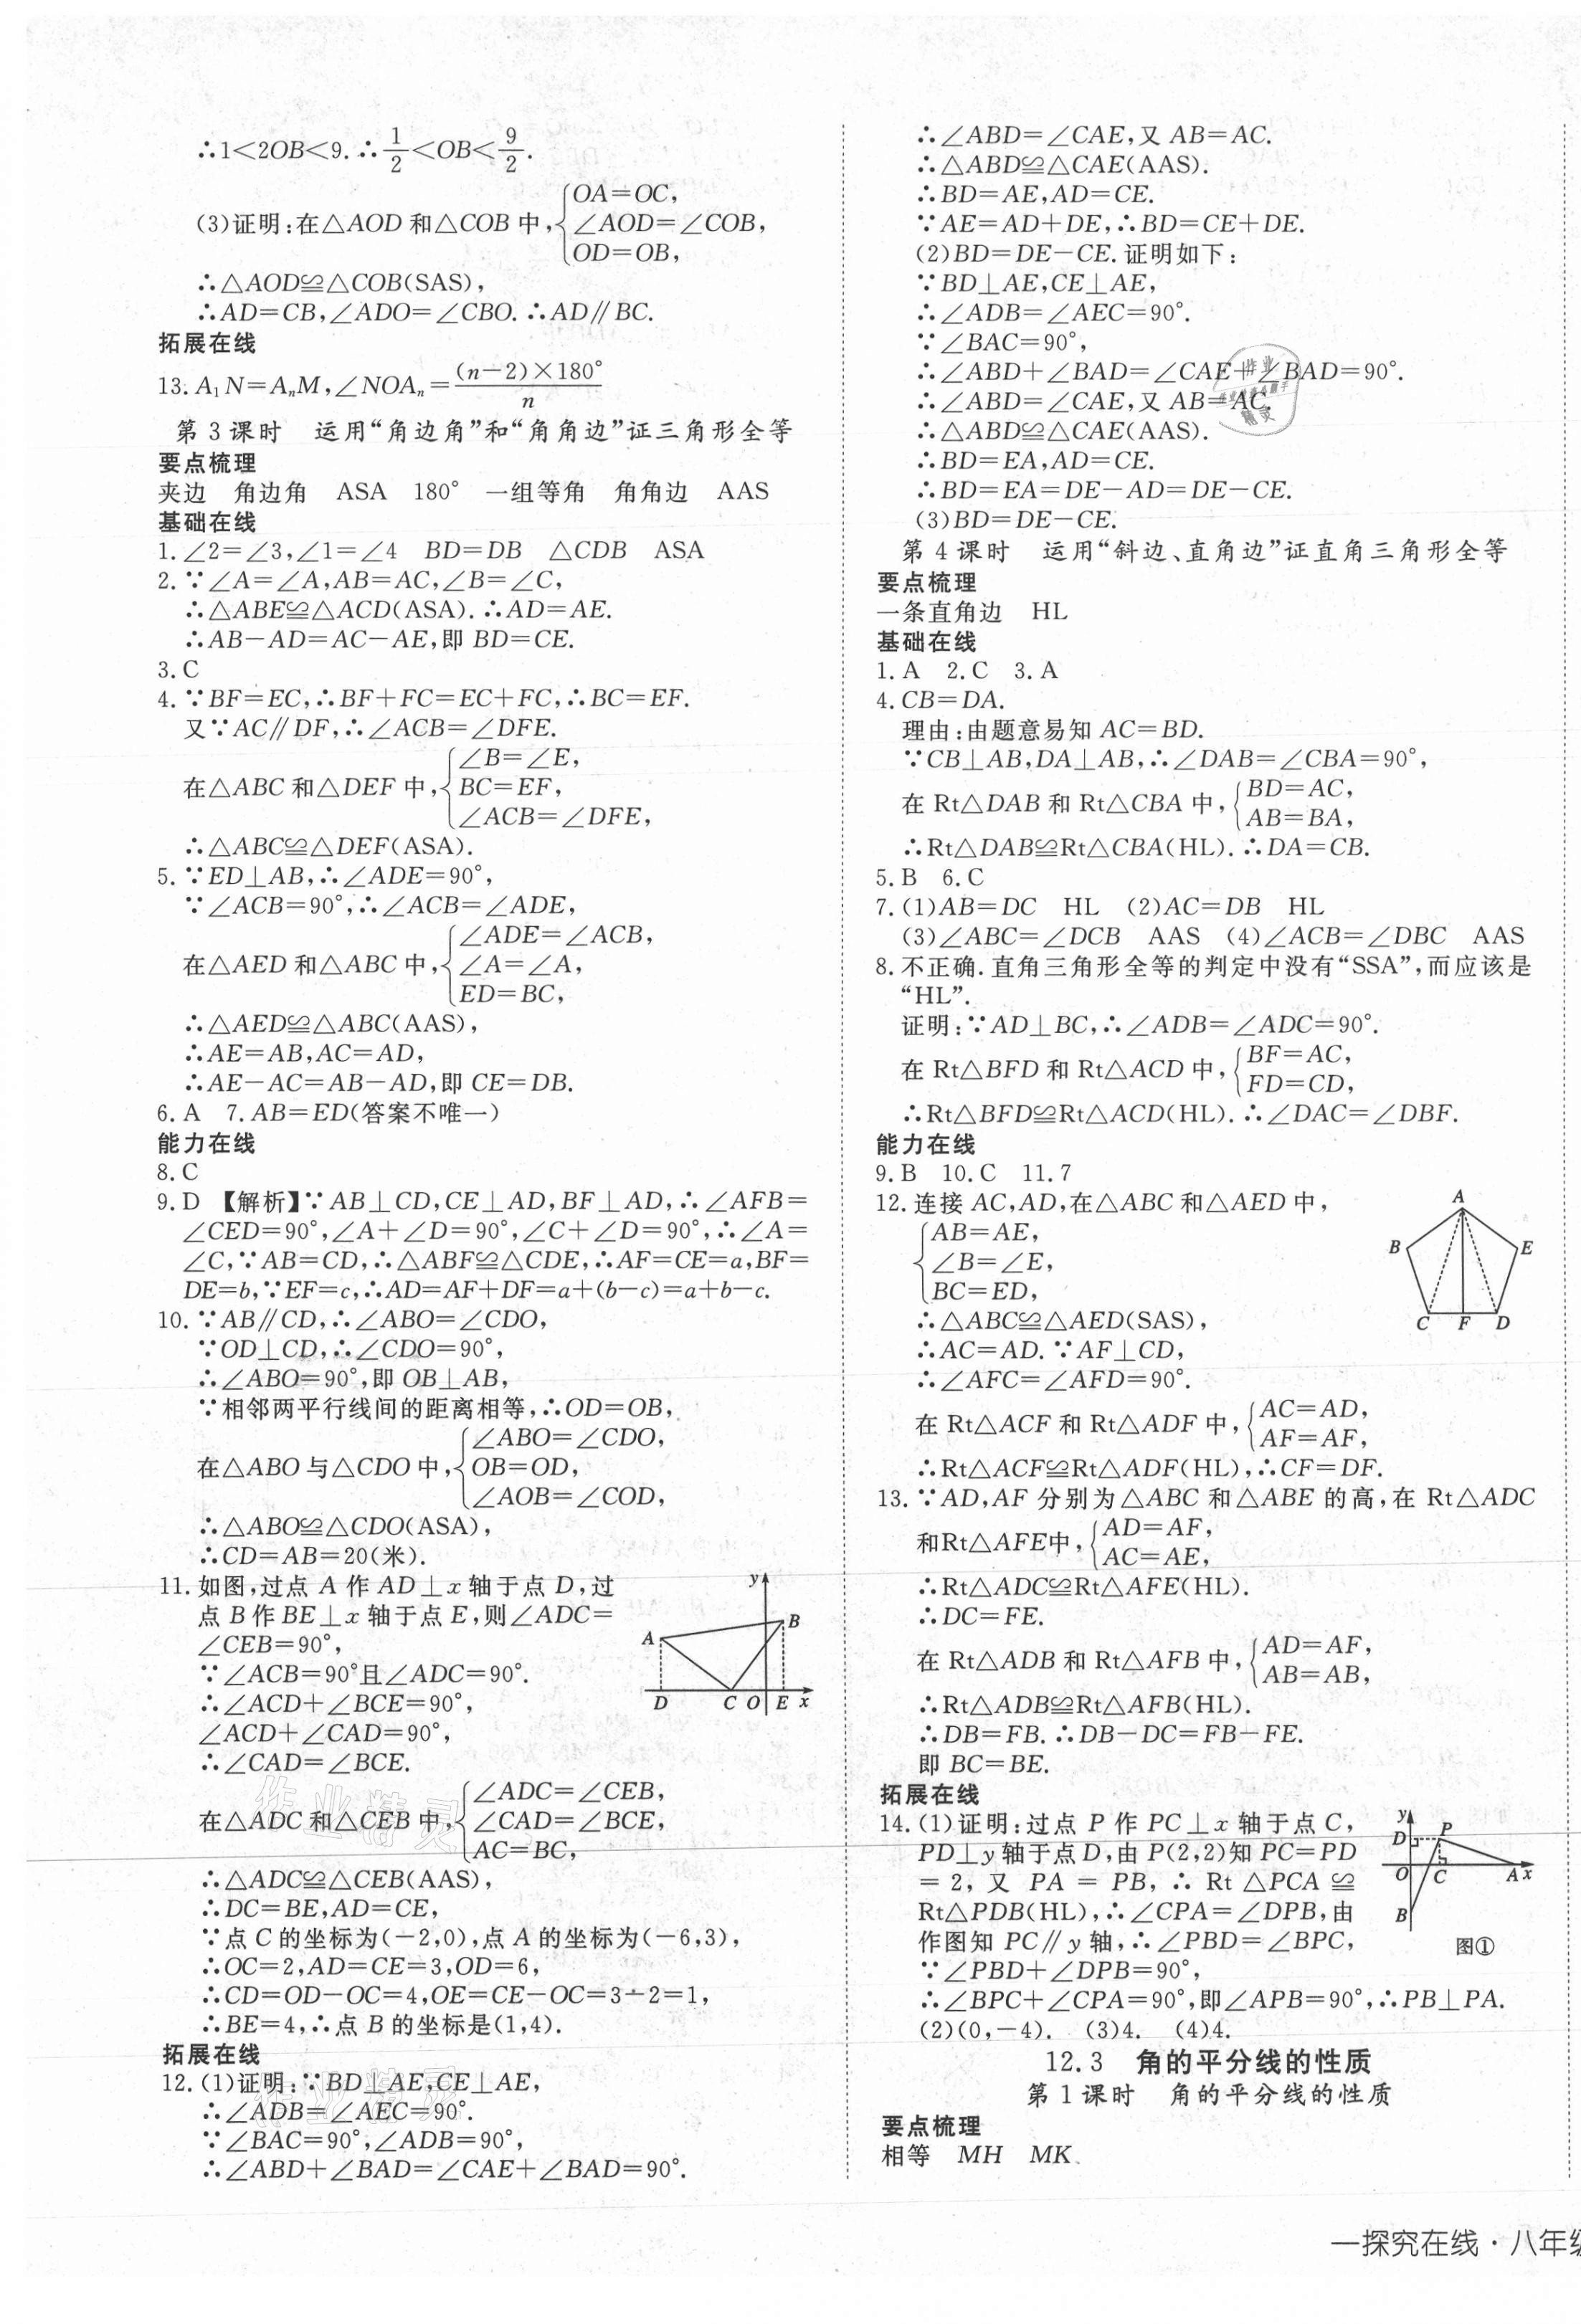 ∴1<2OB<9.∴1/2<OB<9/2.
(3)证明:在△AOD 和△COB 中,{OA=OC,
∠AOD=∠COB,
OD=OB,
∴△AOD≌△COB(SAS),
∴AD=CB,∠ADO=∠CBO.∴AD∥BC.
拓展在线
13.A₁N=AₙM,∠NOAₙ=(n-2)×180°/n
第 3 课时 运用“角边角”和“角角边”证三角形全等
要点梳理
夹边 角边角 ASA 180° 一组等角 角角边 AAS
基础在线
1.∠2=∠3,∠1=∠4 BD=DB △CDB ASA
2.∵∠A=∠A,AB=AC,∠B=∠C,
∴△ABE≌△ACD(ASA).∴AD=AE.
∴AB-AD=AC-AE,即 BD=CE.
3.C
4.∵BF=EC,∴BF+FC=EC+FC,∴BC=EF.
又∵AC∥DF,∴∠ACB=∠DFE.
在△ABC 和△DEF 中,{∠B=∠E,
BC=EF,
∠ACB=∠DFE,
∴△ABC≌△DEF(ASA).
5.∵ED⊥AB,∴∠ADE=90°,
∵∠ACB=90°,∴∠ACB=∠ADE,
在△AED 和△ABC 中,{∠ADE=∠ACB,
∠A=∠A,
ED=BC,
∴△AED≌△ABC(AAS),
∴AE=AB,AC=AD,
∴AE-AC=AB-AD,即 CE=DB.
6.A 7.AB=ED(答案不唯一)
能力在线
8.C
9.D 【解析】∵AB⊥CD,CE⊥AD,BF⊥AD,∴∠AFB=
∠CED=90°,∠A+∠D=90°,∠C+∠D=90°,∴∠A=
∠C,∵AB=CD,∴△ABF≌△CDE,∴AF=CE=a,BF=
DE=b,∵EF=c,∴AD=AF+DF=a+(b-c)=a+b-c.
10.∵AB∥CD,∴∠ABO=∠CDO,
∵OD⊥CD,∴∠CDO=90°,
∴∠ABO=90°,即 OB⊥AB,
∵相邻两平行线间的距离相等,∴OD=OB,
在△ABO 与△CDO 中,{∠ABO=∠CDO,
OB=OD,
∠AOB=∠COD,
∴△ABO≌△CDO(ASA),
∴CD=AB=20(米).
11.如图,过点 A 作 AD⊥x 轴于点 D,过
点 B 作 BE⊥x 轴于点 E,则∠ADC=
∠CEB=90°,
∵∠ACB=90°且∠ADC=90°.
∴∠ACD+∠BCE=90°,
∠ACD+∠CAD=90°,
∴∠CAD=∠BCE.
y
A
B
D C O E x
在△ADC 和△CEB 中,{∠ADC=∠CEB,
∠CAD=∠BCE,
AC=BC,
∴△ADC≌△CEB(AAS),
∴DC=BE,AD=CE,
∵点 C 的坐标为(-2,0),点 A 的坐标为(-6,3),
∴OC=2,AD=CE=3,OD=6,
∴CD=OD-OC=4,OE=CE-OC=3-2=1,
∴BE=4,∴点 B 的坐标是(1,4).
拓展在线
12.(1)证明:∵BD⊥AE,CE⊥AE,
∴∠ADB=∠AEC=90°.
∵∠BAC=90°,∠ADB=90°,
∴∠ABD+∠BAD=∠CAE+∠BAD=90°.
∴∠ABD=∠CAE,又 AB=AC.
∴△ABD≌△CAE(AAS).
∴BD=AE,AD=CE.
∵AE=AD+DE,∴BD=CE+DE.
(2)BD=DE-CE.证明如下:
∵BD⊥AE,CE⊥AE,
∴∠ADB=∠AEC=90°.
∵∠BAC=90°,
∴∠ABD+∠BAD=∠CAE+∠BAD=90°.
∴∠ABD=∠CAE,又 AB=AC.
∴△ABD≌△CAE(AAS).
∴BD=EA,AD=CE.
∴BD=EA=DE-AD=DE-CE.
(3)BD=DE-CE.
第 4 课时 运用“斜边、直角边”证直角三角形全等
要点梳理
一条直角边 HL
基础在线
1.A 2.C 3.A
4.CB=DA.
理由:由题意易知 AC=BD.
∵CB⊥AB,DA⊥AB,∴∠DAB=∠CBA=90°,
在 Rt△DAB 和 Rt△CBA 中,{BD=AC,
AB=BA,
∴Rt△DAB≌Rt△CBA(HL).∴DA=CB.
5.B 6.C
7.(1)AB=DC HL (2)AC=DB HL
(3)∠ABC=∠DCB AAS (4)∠ACB=∠DBC AAS
8.不正确.直角三角形全等的判定中没有“SSA”,而应该是
“HL”.
证明:∵AD⊥BC,∴∠ADB=∠ADC=90°.
在 Rt△BFD 和 Rt△ACD 中,{BF=AC,
FD=CD,
∴Rt△BFD≌Rt△ACD(HL).∴∠DAC=∠DBF.
能力在线
9.B 10.C 11.7
12.连接 AC,AD,在△ABC 和△AED 中,
{AB=AE,
∠B=∠E,
BC=ED,
∴△ABC≌△AED(SAS),
∴AC=AD.∵AF⊥CD,
∴∠AFC=∠AFD=90°.
A
B E
C F D
在 Rt△ACF 和 Rt△ADF 中,{AC=AD,
AF=AF,
∴Rt△ACF≌Rt△ADF(HL),∴CF=DF.
13.∵AD,AF 分别为△ABC 和△ABE 的高,在 Rt△ADC
和Rt△AFE中,{AD=AF,
AC=AE,
∴Rt△ADC≌Rt△AFE(HL).
∴DC=FE.
在 Rt△ADB 和 Rt△AFB 中,{AD=AF,
AB=AB,
∴Rt△ADB≌Rt△AFB(HL).
∴DB=FB.∴DB-DC=FB-FE.
即 BC=BE.
拓展在线
14.(1)证明:过点 P 作 PC⊥x 轴于点 C,
PD⊥y 轴于点 D,由 P(2,2)知 PC=PD
=2,又 PA=PB,∴Rt△PCA≌
Rt△PDB(HL),∴∠CPA=∠DPB,由
作图知 PC∥y 轴,∴∠PBD=∠BPC,
∵∠PBD+∠DPB=90°,
∴∠BPC+∠CPA=90°,即∠APB=90°,∴PB⊥PA.
y
D P
O C A x
B
图①
(2)(0,-4). (3)4. (4)4.
12.3 角的平分线的性质
第 1 课时 角的平分线的性质
要点梳理
相等 MH MK
作业精灵
作业精灵
一探究在线·八年级